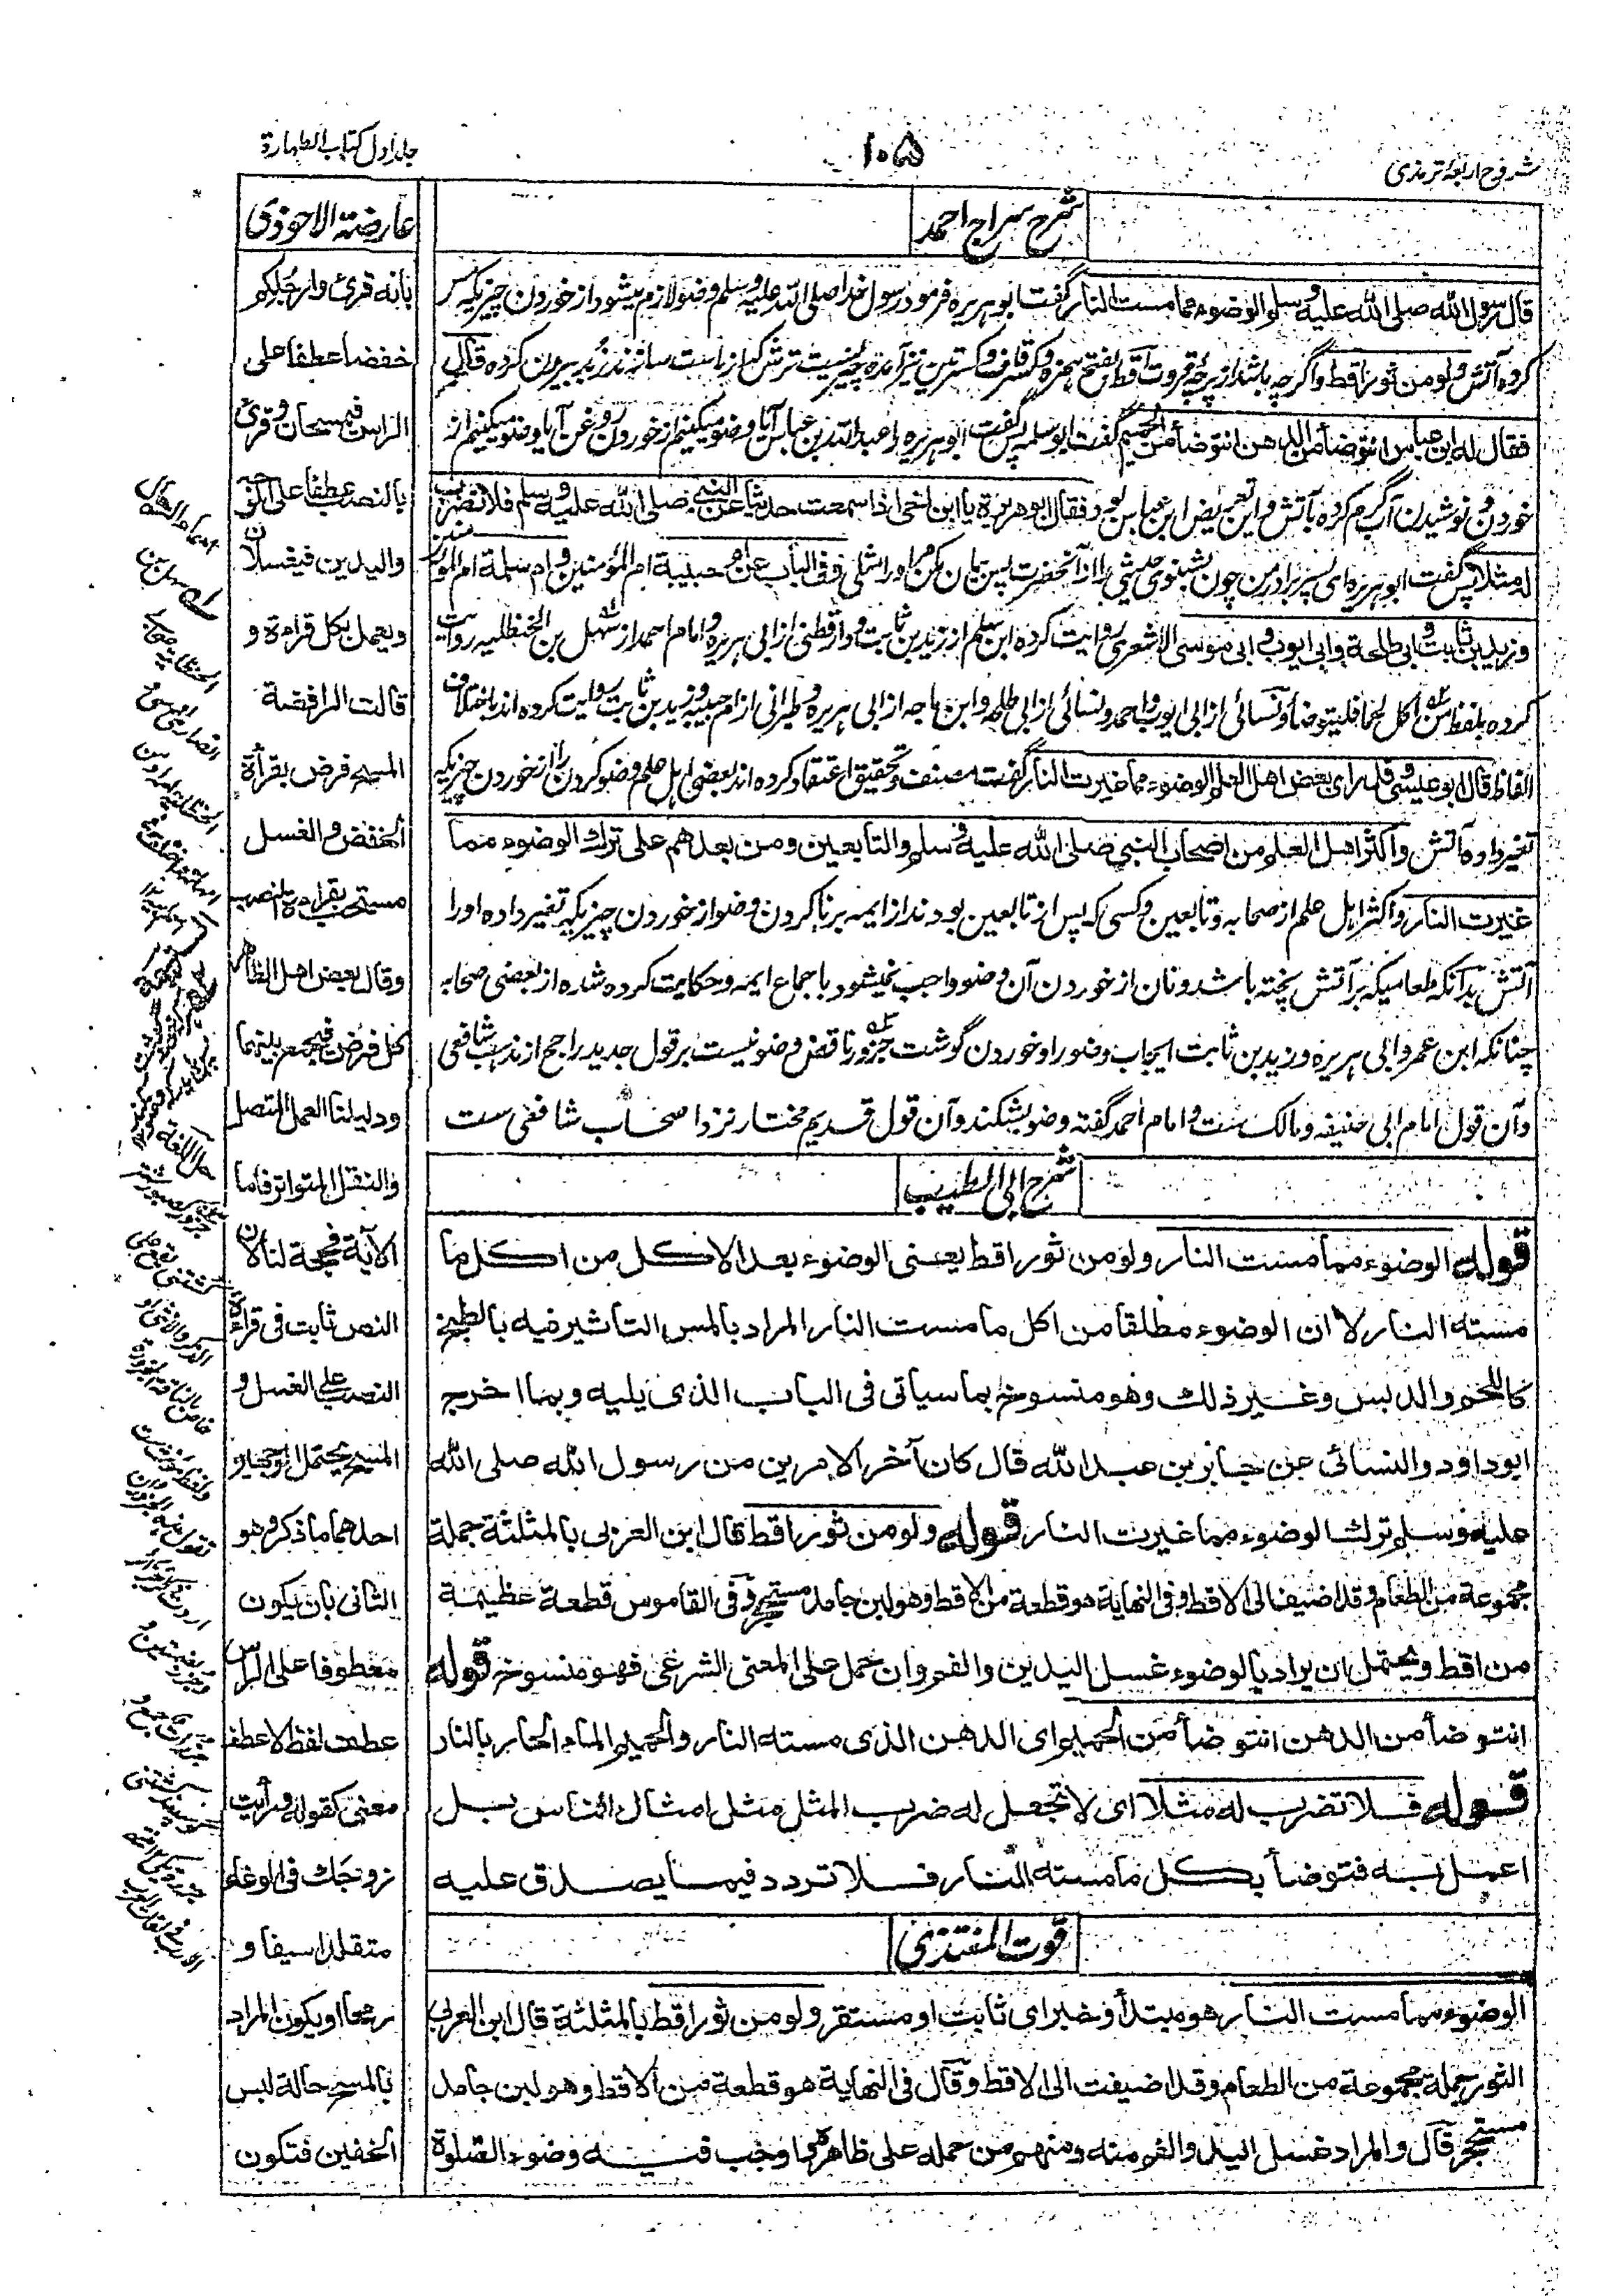 شروح اربعهٔ ترمذی
۱۰۵
جلد اول کتاب الطهارة
شرح سراج احمد
قال رسول الله صلی الله علیه وسلم الوضوء مما مست النار گفت ابو هریره فرمود رسول خدا صلی الله علیه وسلم وضو لازم میشود از خوردن چیزیکه مس
کرده آتش ولو من ثور اقط واگرچه باشد از پرچهٔ قروت اقط بفتح همزه وکسر قاف وکسرتین نیز آمده پنیریست ترش که از ماست سازند زبد بیرون کرده قال
فقال له ابن عباس انتوضأ من الدهن انتوضأ من الحمیم گفت ابو سلمه پس گفت ابو هریره را عبدالله بن عباس آیا وضو میکنیم از خوردن روغن آیا وضو میکنیم از
خوردن ونوشیدن آب گرم کرده بآتش واین تعریض ابن عباس بود فقال ابو هریرة یا ابن اخی اذا سمعت حدیثا عن النبی صلی الله علیه وسلم فلا تضرب
له مثلا پس گفت ابو هریره ای پسر برادر من چون بشنوی حدیثی را از آنحضرت پس بیان مکن مر او را مثلی وفی الباب عن ام حبیبة ام المؤمنین وام سلمة ام المؤمنین
وزید بن ثابت وابی طلحة وابی ایوب وابی موسی الاشعری روایت کرده ابن سلم از زید بن ثابت ودارقطنی از ابی هریره وامام احمد از سهل بن الحنظلیه روایت
کرده بلفظ من اکل لحما فلیتوضأ ونسائی از ابی ایوب واحمد ونسائی از ابی طلحه وابن ماجه از ابی هریره وطبرانی از ام حبیبه وزید بن ثابت روایت کرده اند باختلاف
الفاظ قال ابو عیسی وقد رای بعض اهل العلم الوضوء مما غیرت النار گفت مصنف وتحقیق اعتقاد کرده اند بعضی اهل علم وضو کردن را از خوردن چیزیکه
تغیر داده آتش واکثر اهل العلم من اصحاب النبی صلی الله علیه وسلم والتابعین ومن بعدهم علی ترک الوضوء مما
غیرت النار واکثر اهل علم از صحابه وتابعین وکسی که پس از تابعین بودند از ایمه بر ناکردن وضو از خوردن چیزیکه تغیر داده او را
آتش بدانکه طعامیکه بر آتش پخته باشد ونان از خوردن آن وضو واجب نمیشود باجماع ایمه وحکایت کرده شده از بعضی صحابه
چنانکه ابن عمر وابی هریره وزید بن ثابت ایجاب وضو را وخوردن گوشت جزور ناقض وضو نیست بر قول جدید راجح از مذهب شافعی
وآن قول امام ابی حنیفه ومالک ست وامام احمد گفته وضو بشکند وآن قول قدیم مختار نزد اصحاب شافعی ست
شرح ابی الطیب
قوله الوضوء مما مست النار ولو من ثور اقط یعنی الوضوء بعد الاکل من اکل ما
مسته النار لا ان الوضوء مطلقا من اکل ما مست النار المراد بالمس التاثیر فیه بالطبخ
کاللحم والدبس وغیر ذلک وهو منسوخ بما سیاتی فی الباب الذی یلیه وبما اخرج
ابوداود والنسائی عن جابر بن عبد الله قال کان آخر الامرین من رسول الله صلی الله
علیه وسلم ترک الوضوء مما غیرت النار قوله ولو من ثور اقط قال ابن العربی بالمثلثة جملة
مجموعة من الطعام وقد اضیف الی الاقط وفی النهایة هو قطعة من الاقط وهو لبن جامد مستحجر وفی القاموس قطعة عظیمة
من اقط ویحتمل ان یراد بالوضوء غسل الیدین والفم وان حمل علی المعنی الشرعی فهو منسوخ قوله
انتوضأ من الدهن انتوضأ من الحمیم ای الدهن الذی مسته النار والحمیم الماء الحار بالنار
قوله فلا تضرب له مثلا ای لا تجعل له ضرب المثل مثل امثال الناس بل
اعمل به فتوضأ بکل ما مسته النار فلا تردد فیما یصدق علیه
قوت المغتذی
الوضوء مما مست النار هو مبتدأ وخبر ای ثابت او مستقر ولو من ثور اقط بالمثلثة قال ابن العربی
الثور جملة مجموعة من الطعام وقد اضیفت الی الاقط وقال فی النهایة هو قطعة من الاقط وهو لبن جامد
مستحجر قال والمراد غسل الید والفم منه ومنهم من حمله علی ظاهره واوجب فیه وضوء الصلوة
عارضة الاحوذی
بانه قرئ وارجلکم
خفضا عطفا علی
الراس فیمسحان وقرئ
بالنصب عطفا علی الوجه
والیدین فیغسلان
ویعمل بکل قراءة و
قالت الرافضة
المسح فرض بقرأة
الخفض والغسل
مستحب بقراءة النصب
وقال بعض اهل الظاهر
کل فرض فیجمع بینهما
ودلیلنا العمل المتصل
والنقل المتواتر فاما
الآیة فحجة لنا لان
النص ثابت فی قراءة
النصب علی الغسل و
المسح یحتمل الوجهین
احدهما ما ذکر وهو
الثانی بان یکون
معطوفا علی الراس
عطف لفظ لا عطف
معنی کقوله ورأیت
زوجک فی الوغا
متقلدا سیفا و
رمحا او یکون المراد
بالمسح حالة لبس
الخفین فتکون